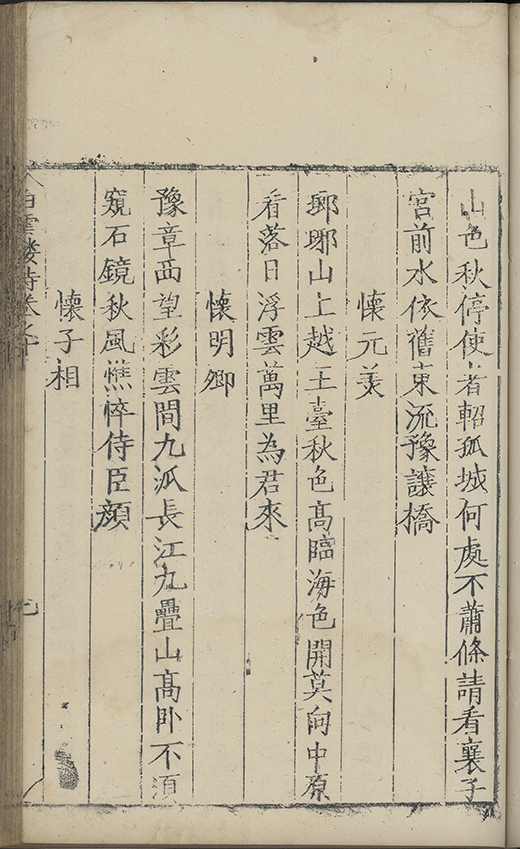 山色秋停使者軺孤城何處不蕭條請看襄子
宮前水依舊東流豫讓橋
懷元美
瑯琊山上越王臺秋色高臨海色開莫向中原
看落日浮雲萬里為君來
懷明卿
豫章西望彩雲間九派長江九疊山高臥不須
窺石鏡秋風憔悴侍臣顏
懷子相
白雲樓詩卷之十